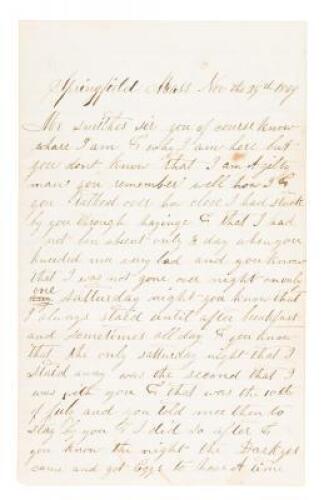 Springfield Mass Nov the 29th
Mr sir you of course know
whare I am & why I am here but
you dont know that I am A gilty
man you remember well how I &
you talked over how close I had stuck
by you through hayinge & that I had
not bin absent only ½ day when you
kneeded me very bad and you know
that I was not gone over night on only
one satturday night you know that
I always staid until after breakfast
and sometimes all day & you know
that the only satturday night that I
staid away was the second that I
was with you & that was the 10th
of July and you told mee then to
stay by you & I did so after &
you know the night the Darkyes
came and got Eggs to have A time